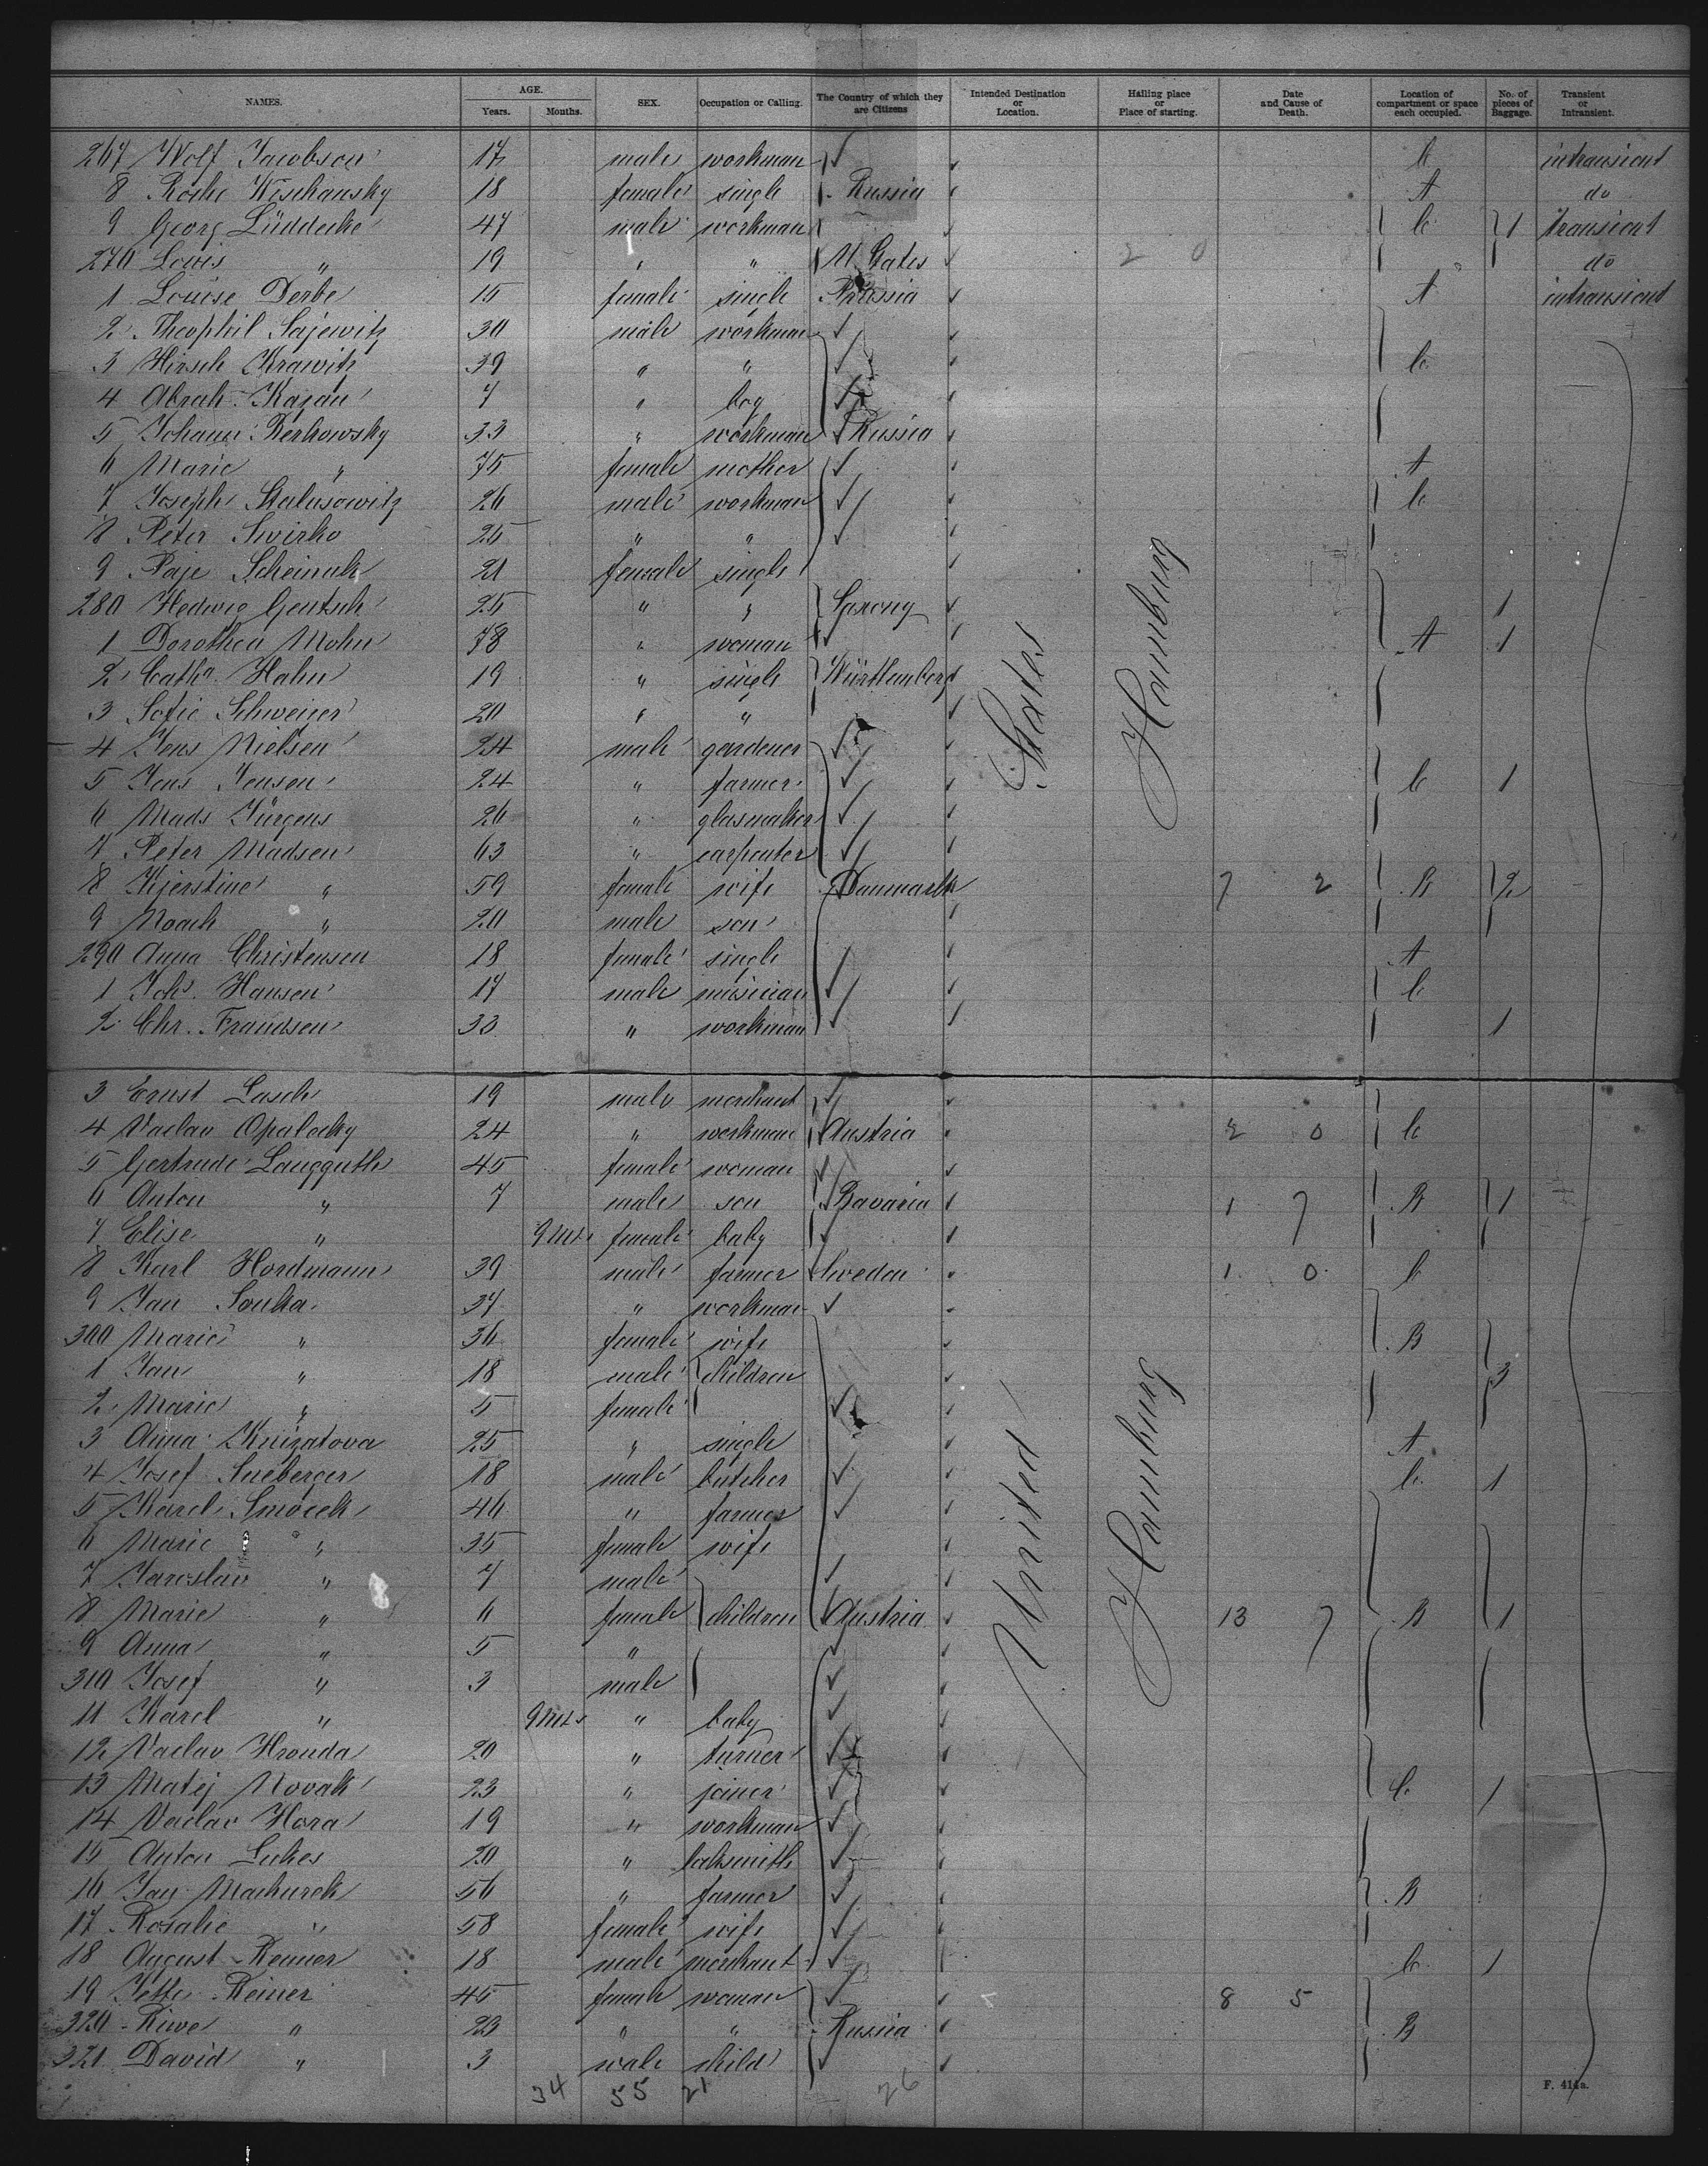 NAMES. AGE. Years. Months. SEX. Occupation or Calling. The Country of which they are Citizens Intended Destination or Location. Hailing place or Place of starting. Date and Cause of Death. Location of compartment or space each occupied. No. of pieces of Baggage. Transient or Intransient.
267 Wolf Jacobson 17 male workman C intransient
8 Roche Wischansky 18 female single Russia A do
9 Georg Lüddecke 47 male workman C 1 transient
270 Louis " 19 " " U. States 2 0 do
1 Louise Derbe 15 female single Prussia A intransient
2 Theophil Sajewitz 30 male workman
3 Hirsch Krawitz 39 " " C
4 Abrah. Kazan 7 " boy
5 Johann Berkowsky 33 " workman Russia
6 Marie " 75 female mother A
7 Joseph Stalusowitz 26 male workman C
8 Peter Swirko 25 " "
9 Paje Scheinuk 21 female single
280 Hedwig Gentsch 25 " " Saxony 1
1 Dorothea Mohn 78 " woman A 1
2 Cath. Hahn 19 " single Württemberg
3 Sofie Schweizer 20 " "
4 Jens Nielsen 24 male gardener
5 Jens Jensen 24 " farmer C 1
6 Mads Jürgens 26 " glasmaker
7 Peter Madsen 63 " carpenter
8 Kjerstine " 59 female wife Danmark 7 2 B 2
9 Noach " 20 male son
290 Anna Christensen 18 female single A
1 Joh. Hansen 17 male musician C
2 Chr. Frandsen 33 " workman 1
3 Ernst Lasch 19 male merchant
4 Vaclav Opalecky 24 " workman Austria 2 0 C
5 Gertrude Langguth 45 female woman
6 Anton " 7 male son Bavaria 1 7 B 1
7 Elise " 9 Mts female baby
8 Karl Hordmann 39 male farmer Sweden 1 0 C
9 Jan Souka 37 " workman
300 Marie " 36 female wife B
1 Jan " 18 male children 3
2 Marie " 5 female
3 Anna Knizatova 25 " single A
4 Josef Sneberger 18 male butcher C 1
5 Karel Smocek 46 " farmer
6 Marie " 35 female wife
7 Jaroslav " 7 male
8 Marie " 6 female children Austria 13 7 B 1
9 Anna " 5 "
310 Josef " 3 male
11 Karel " 9 Mts " baby
12 Vaclav Hronda 20 " turner
13 Matej Novak 23 " joiner C 1
14 Vaclav Hora 19 " workman
15 Anton Lukes 20 " locksmith
16 Jan Machurek 56 " farmer B
17 Rosalie " 58 female wife
18 August Renner 18 male merchant C 1
19 Jette Reiner 45 female woman 8 5
320 Riwe " 23 " " Russia B
321 David " 3 male child
34 55 21 26
United States
Hamburg
Hamburg
F. 414a.